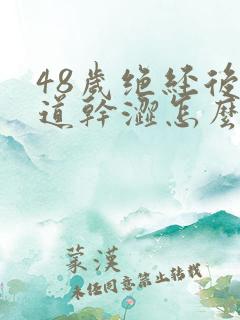 48歲绝經後
道幹澀怎麼
蒙漢
未经同意禁止转载